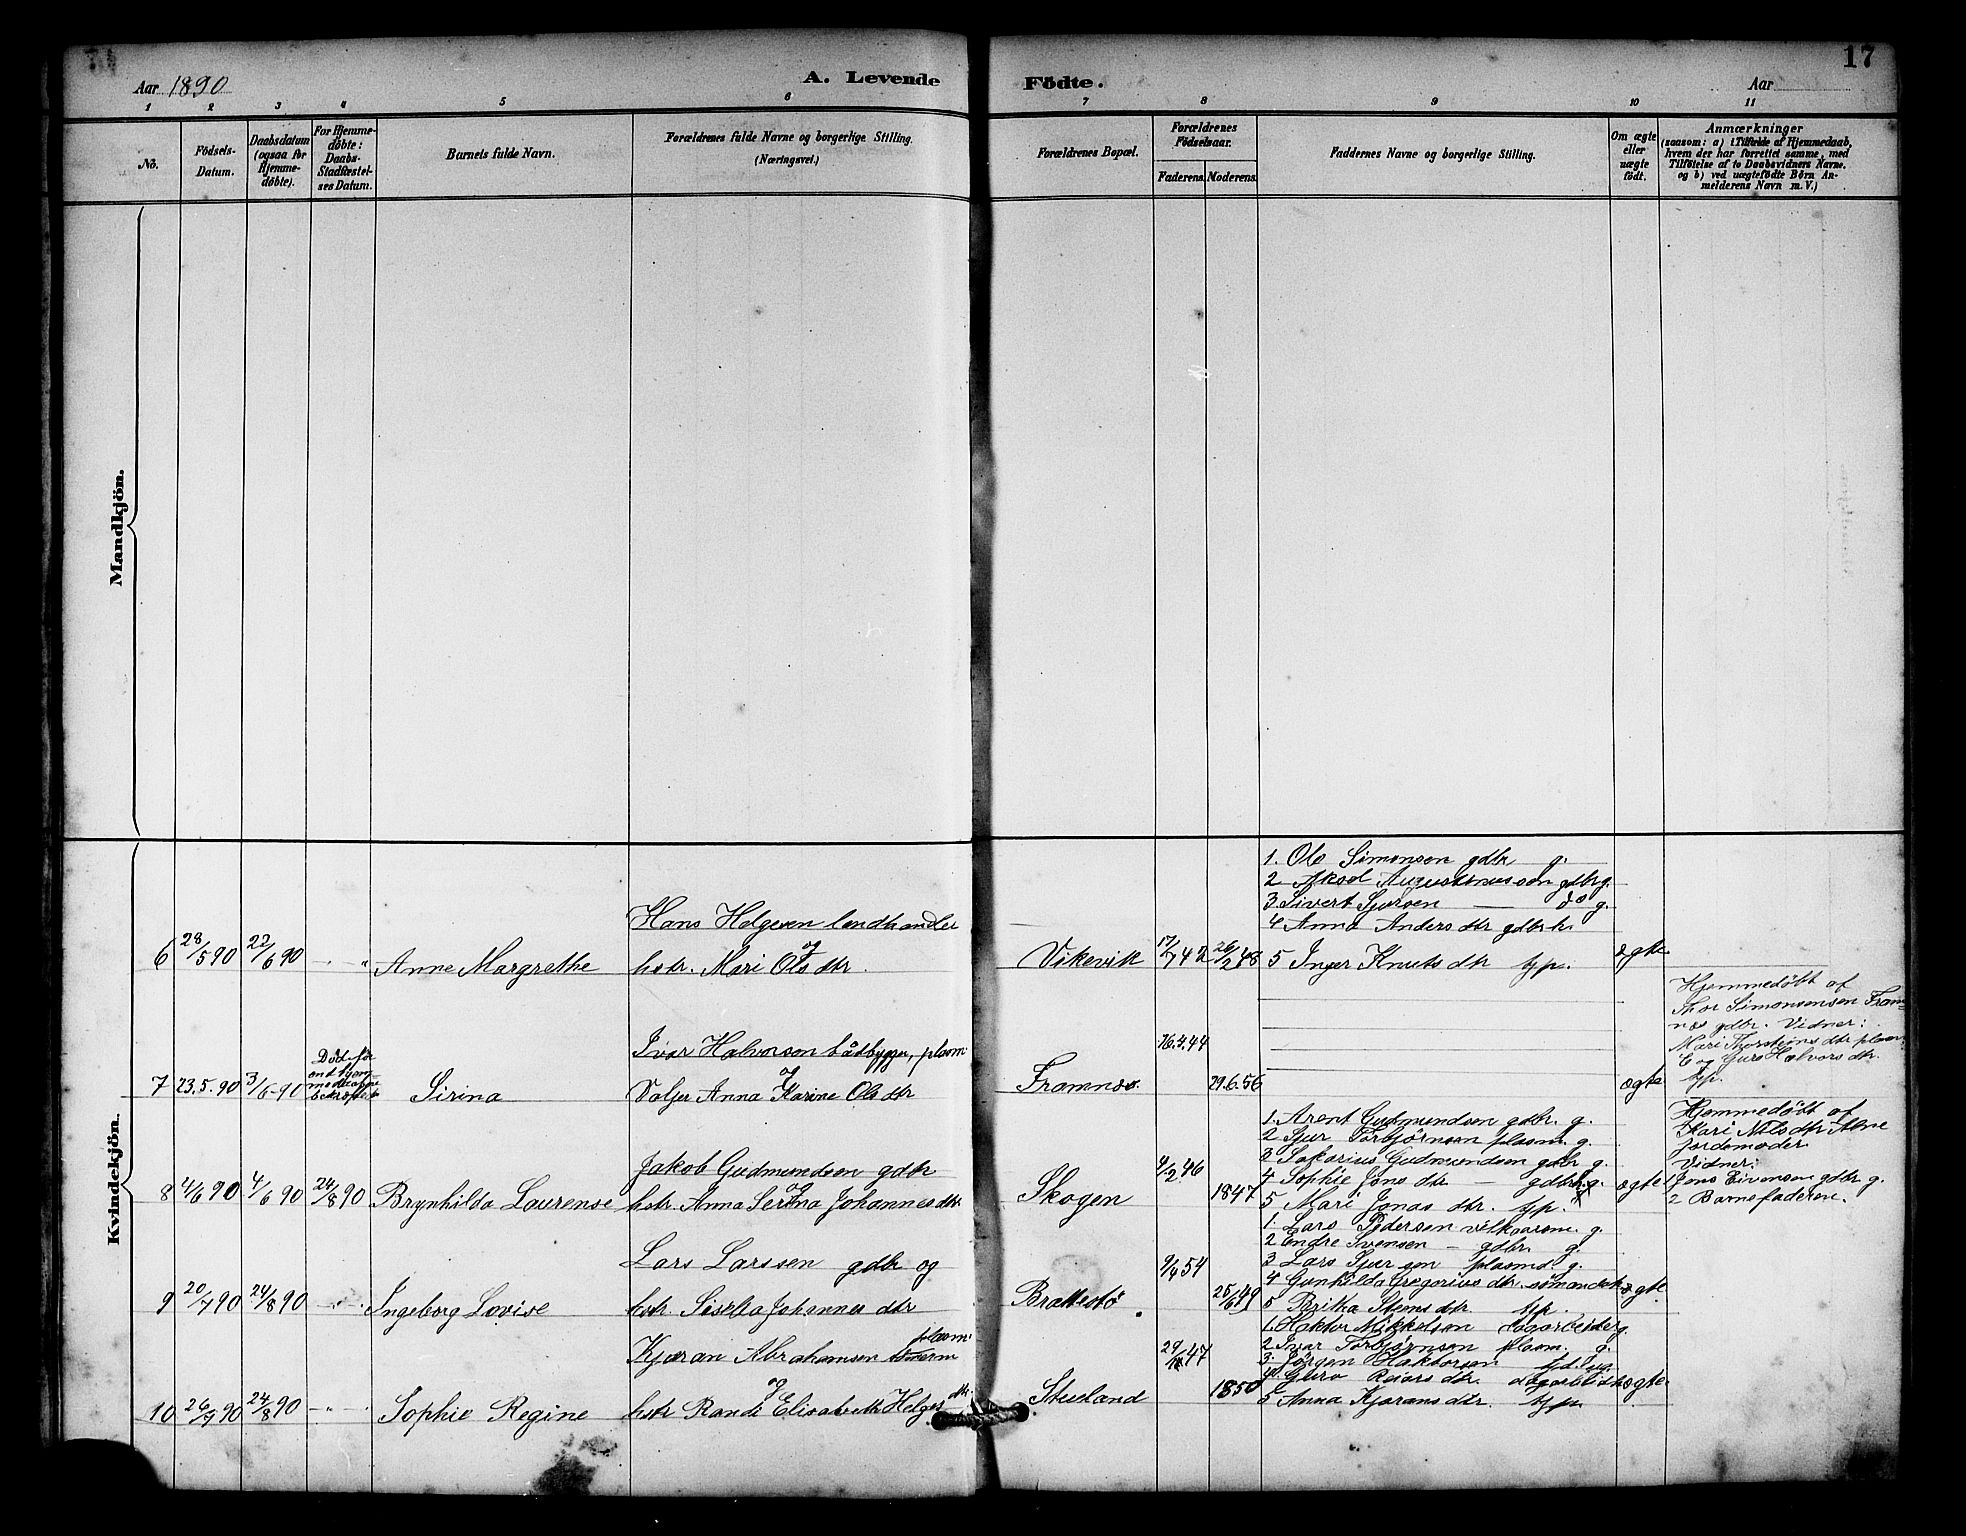 17
Aar 1890
A. Levende
Födte.
Aar
1 2 3 4 5 6 7 8 9 10 11
No.
Födsels-
Datum.
Daabsdatum
(ogsaa for
Hjemme-
döbte).
For Hjemme-
döbte:
Daabs-
Stadfæstel-
ses Datum.
Barnets fulde Navn.
Forældrenes fulde Navne og borgerlige Stilling.
(Næringsvei.)
Forældrenes Bopæl.
Forældrenes
Födselsaar.
Faderens. Moderens.
Faddernes Navne og borgerlige Stilling.
Om ægte
eller
uægte
födt.
Anmærkninger
(saasom: a) i Tilfælde af Hjemmedaab,
hvem der har forrettet samme, med
Tilföielse af to Daabsvidners Navne.
og b) ved uægtefödte Börn An-
melderens Navn m. V.)
Mandkjön.
Kvindekjön.
6
28/5 90
22/6 90
Anne Margrethe
Hans Helgesen landhandler
og
hstr. Mari Ols dtr.
Vikevik
26/2 48
1. Ole Simonsen gdbr g.
2 Aksel Augustinussen gdbr g.
3. Sivert Sjursen — do g.
4 Anna Anders dtr gdbrk.
5 Inger Knuts dtr tjp.
ægte
7
23.5.90
3/6-90
Död før
Sirina
Ivar Halvorsen bådbygger, plasm
og
Valjer Anna Karine Ols dtr
Framnæs
29.6.56
ægte
Hjemmedöbt af
Thor Simonsensen Fram-
næs gdbr. Vidner:
Mari Thorsteins dtr plasm.
E og Guro Halvors dtr.
tjp.
8
4/6 90
4/6 90
24/8 90
Brynhilda Laurense
Jakob Gudmundsen gdbr
og
hstr. Anna Serina Johannes dtr
Skogen
4/2 46
1847
1. Arent Gudmundsen gdbr. g.
2 Sjur Torbjörnsen plasm. g.
3 Sakarius Gudmundsen gdbr g.
4 Sophie Jons dtr — gdbrk.g.
5 Mari Jonas dtr. tjp.
ægte
Hjemmedöbt af
Kari Nils dtr Alne
Jordemoder
Vidner:
1 Jens Eivensen gdbr g.
2 Barnefaderen.
9
20/7 90
24/8 90
Ingeborg Lovise
Lars Larssen gdbr og
hstr. Siselia Johannes dtr
Brattestö
9/4 54
25/6 49
1. Lars Pedersen vilkaarsm. g.
2 Endre Svensen — gdbr. g.
3 Lars Sjursen plasmd g.
4 Gunhilda Gregorius dtr. sömandsk.
5 Britha Steens dtr. tjp.
ægte
10
24/8 90
Sophie Regine
plasm.
Kjaran Abrahamsen
og
hstr Randi Elisabeth Helges dtr.
Stueland
1850
1. Haktor Mikkelsen dagarbeider g.
2. Ivar Torbjörnsen plasm. g.
3. Jörgen Haktorsen
5 Anna Kjarans dtr. tjp.
ægte